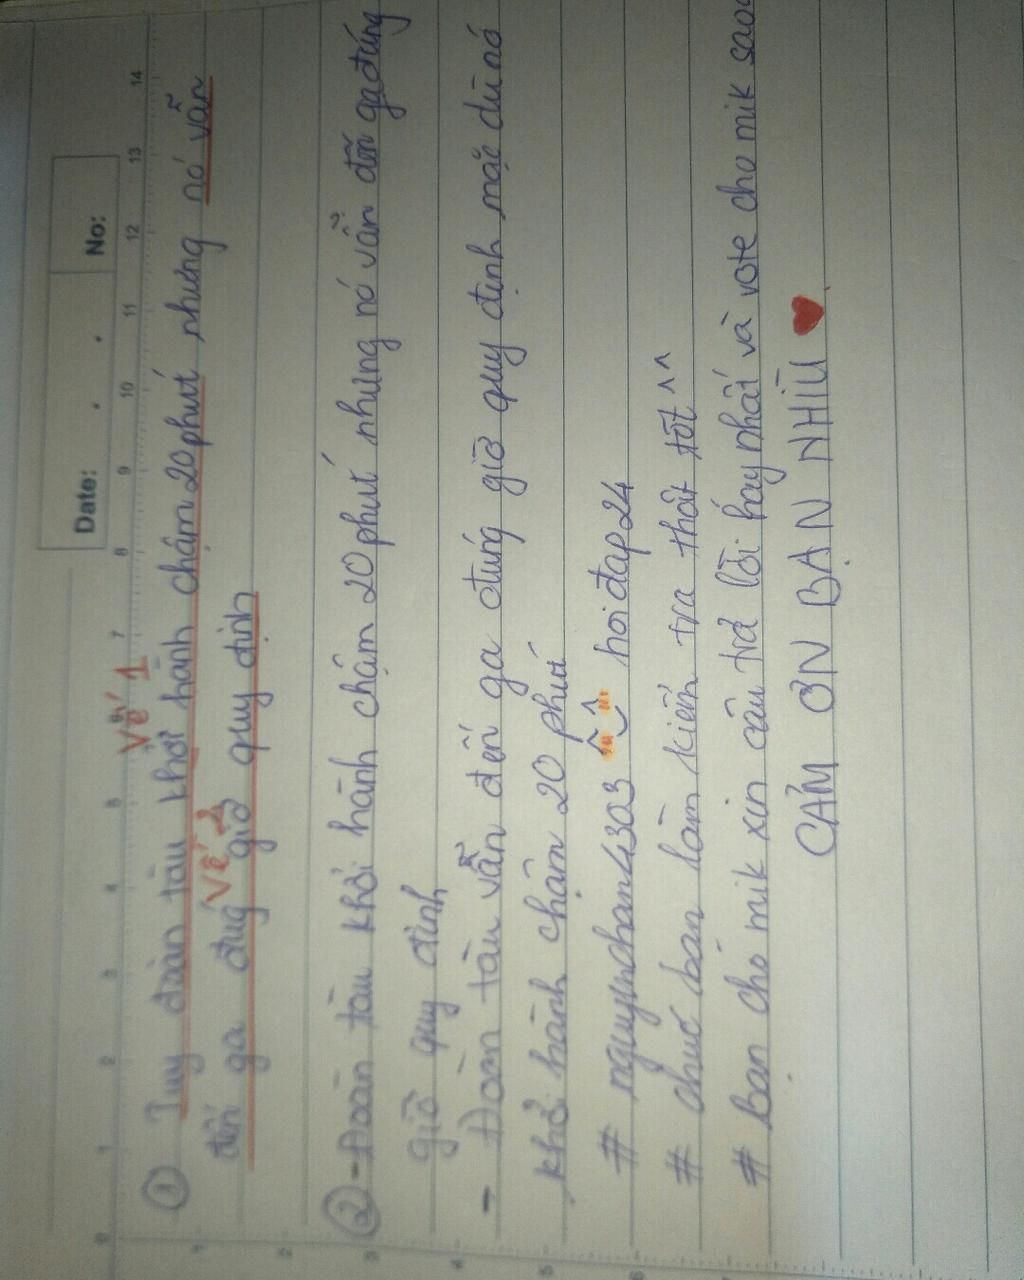 Date: No:
0 1 2 3 4 5 6 7 8 9 10 11 12 13 14
Vế 1
① Tuy đoàn tàu khởi hành chậm 20 phút nhưng nó vẫn
Vế 2
đến ga đúg giờ quy định
② - Đoàn tàu khởi hành chậm 20 phút nhưng nó vẫn đến ga đúng
giờ quy định
- Đoàn tàu vẫn đến ga đúng giờ quy định mặc dù nó
khởi hành chậm 20 phút
# nguynhan4303 hoiđap24
# chuc ban làm kiểm tra thật tốt ^^
# Ban cho mik xin câu trả lời hay nhất và vote cho mik sao
CẢM ƠN BẠN NHÌU ♥